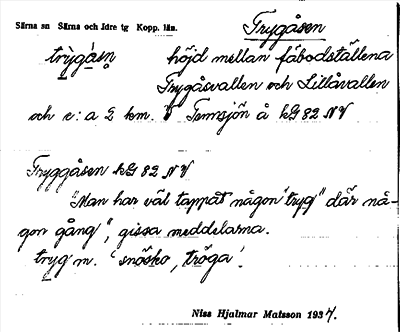 Särna sn Särna och Idre tg Kopp. län.
Trygåsen
trỳgásn̥ höjd mellan fäbodställena
Trygåsvallen och Lillåvallen
och c:a 2 km. V Temsjön å kG 82 NV
Tryggåsen kG 82 NV
"Man har väl tappat någon "tryg" där nå-
gon gång", gissa meddelarna.
tryg m. 'snösko, tröga'.
Niss Hjalmar Matsson 1937.